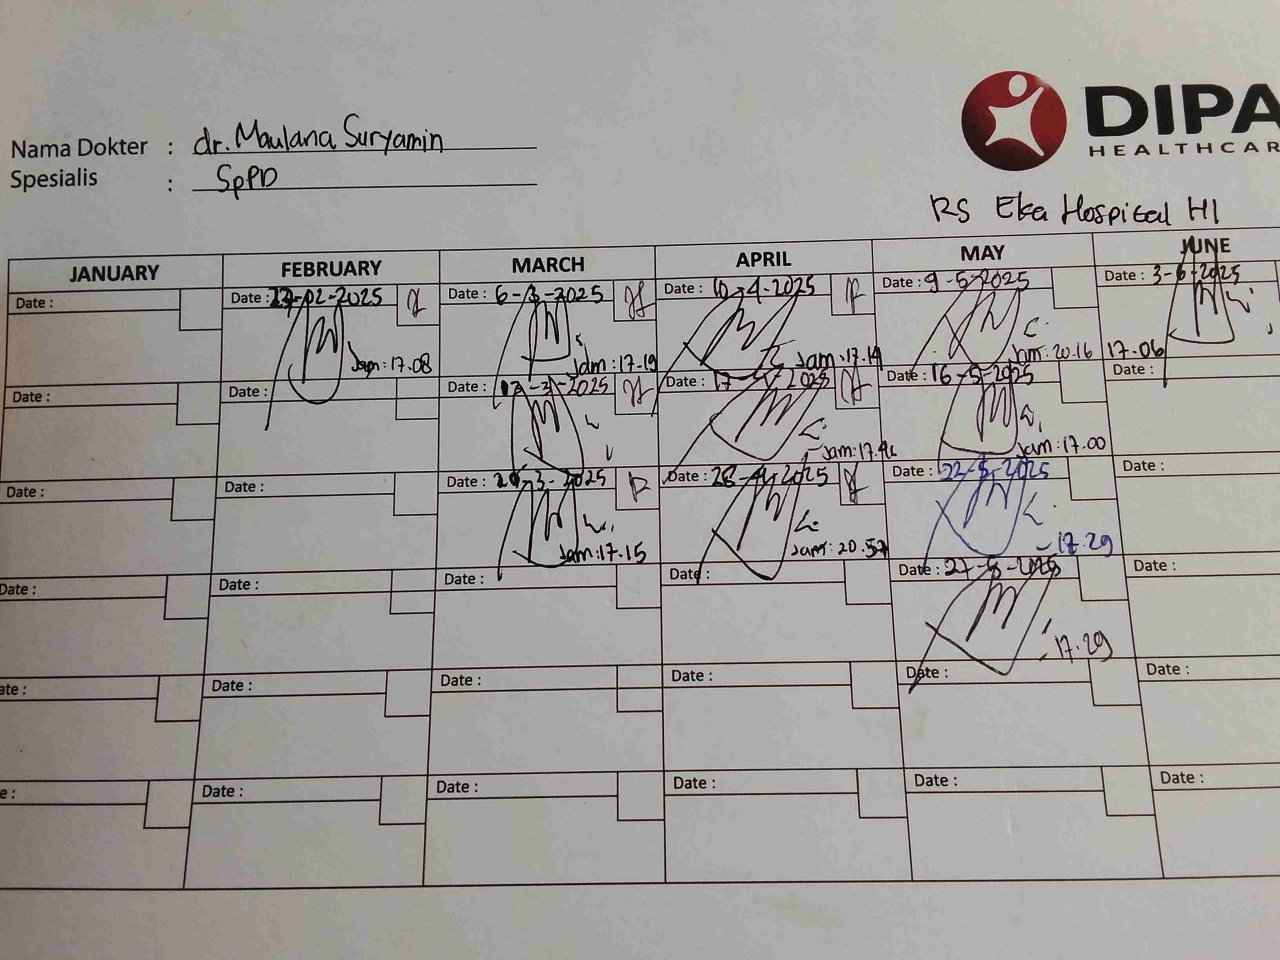 DIPA
HEALTHCAR
Nama Dokter : dr. Maulana Suryamin
Spesialis : SpPD
RS Eka Hospital HI
JANUARY FEBRUARY MARCH APRIL MAY JUNE
Date : Date : 27-02-2025 Date : 6-3-2025 Date : 10-4-2025 Date : 9-5-2025 Date : 3-6-2025
Jam: 17.08 Jam: 17.19 Jam: 17.19 Jam: 20.16 17.06
Date : Date : Date : 12-3-2025 Date : 17-4-2025 Date : 16-5-2025 Date :
Jam: Jam: 17.00
Date : Date : Date : 20-3-2025 Date : 28-4-2025 Date : 22-5-2025 Date :
Jam: 17.15 Jam: 20.57 17.29
Date : Date : Date : Date : Date : 27-5-2025 Date :
17.29
ate : Date : Date : Date : Date : Date :
e : Date : Date : Date : Date : Date :